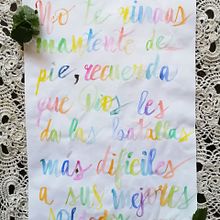 No te rindas
mantente de
pie, recuerda
que Dios les
da las batallas
mas dificiles
a sus mejores